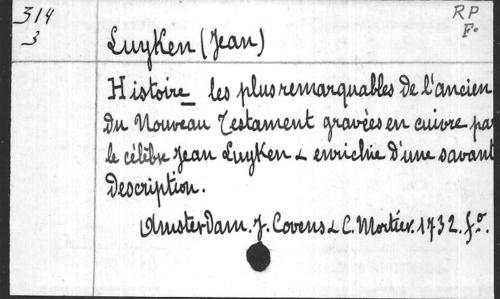 314
3
RP
F.
Luyken (Jean)
Histoire les plus remarquables de l'ancien
du Nouveau Testament gravées en cuivre par
le célèbre Jean Luyken & enrichie d'une savant
description.
Amsterdam. J. Covens & C. Mortier. 1732. fo.